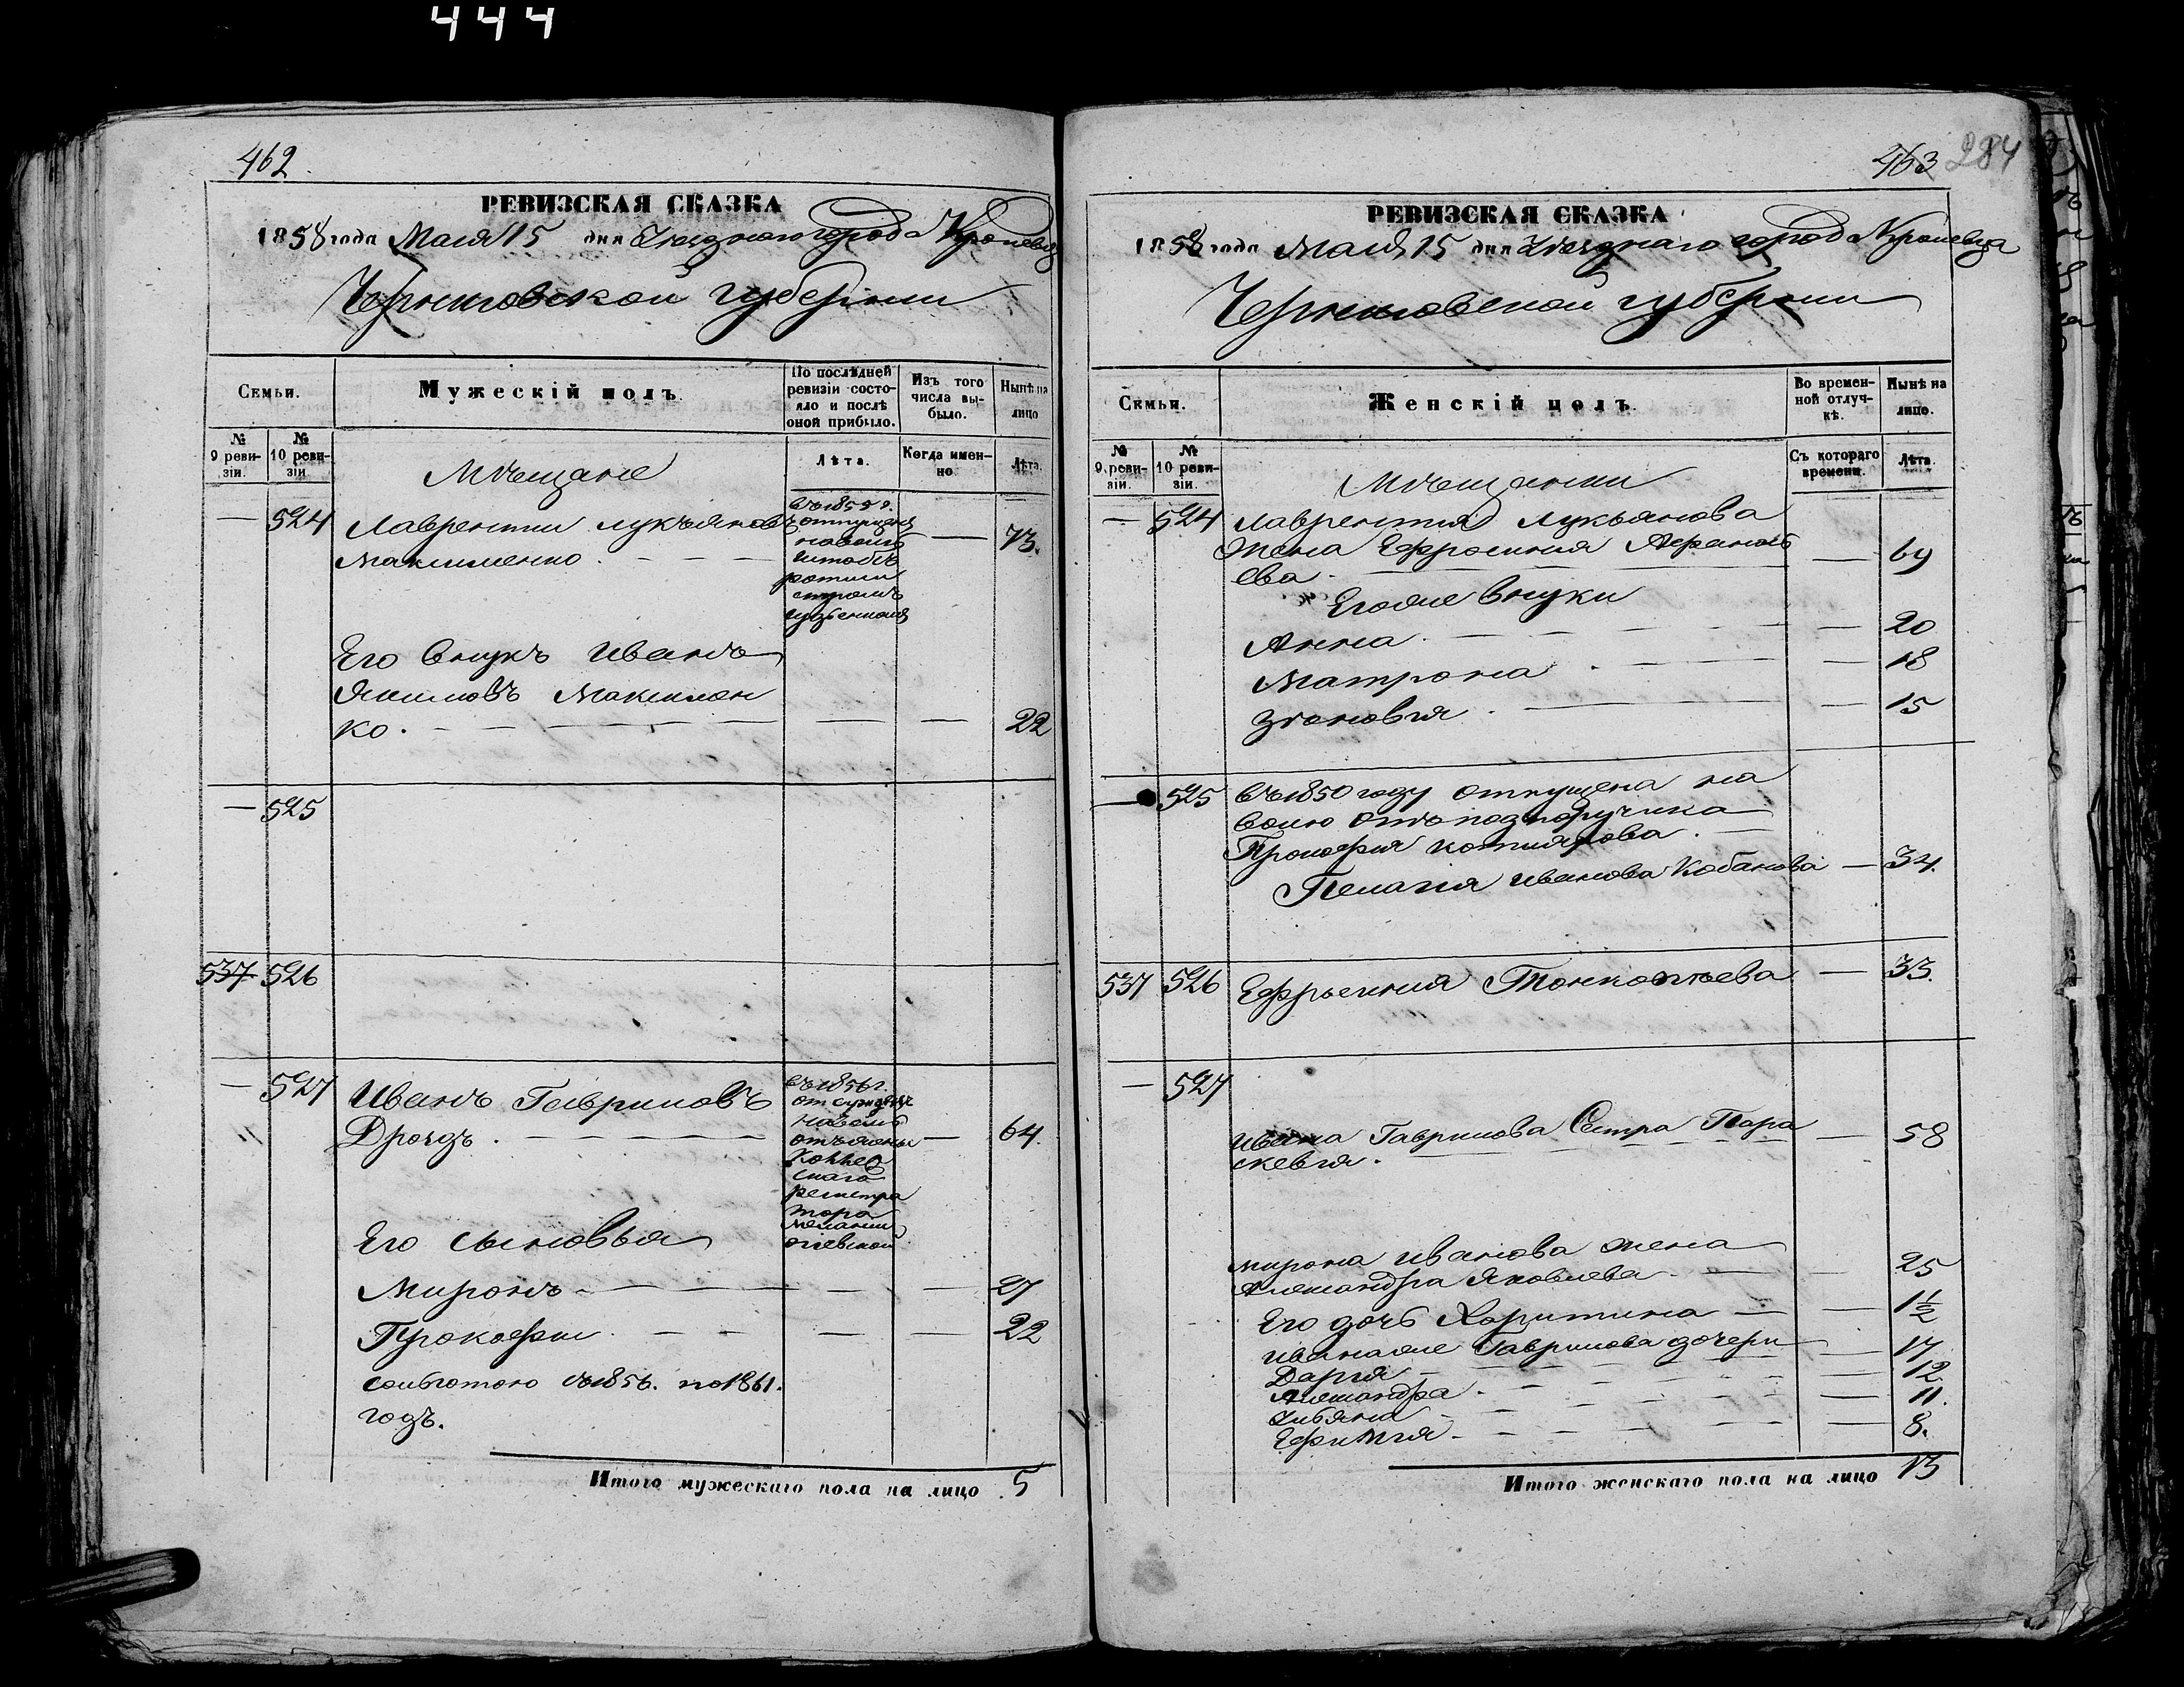 444
462
РЕВИЗСКАЯ СКАЗКА
1858 года Маія 15 дня Уезднаго города Кролевца
Черниговской губерніи
Семьи.
Мужескій полъ.
По послѣдней ревизіи состояло и послѣ оной прибыло.
Изъ того числа выбыло.
Нынѣ на лицо
№ 9 ревизіи.
№ 10 ревизіи
Лѣта.
Когда именно.
Лѣта.
Мѣщане
— 524 Лаврентій Лукъяновъ
Максименко — 73.
отпущенъ
наволю
штабъ
ротми
стромъ
Его внукъ Иванъ
Якимовъ Максимен
ко. — — — 22
— 525
537 526
— 527 Иванъ Гавриловъ
Дроздъ. — — 64.
въ 1856 г.
отпущенъ
наволю
отъ жены
Коллеж
скаго
регистра
тора
Меланіи
Его сыновья
Миронъ — — — 27
Прокофій — — — 22
сольготою съ 1856. по 1861.
годъ.
Итого мужескаго пола на лицо 5
463
284
РЕВИЗСКАЯ СКАЗКА
1858 года Маія 15 дня Уезднаго город Кролевца
Черниговской губерніи
Семьи.
Женскій полъ.
Во временной отлучкѣ.
Нынѣ на лицо.
№ 9 ревизіи.
№ 10 ревизіи.
Съ котораго времени.
Лѣта.
Мѣщанки
— 524 Лаврентія Лукьянова
Жена Ефросинія Афанась
ева — — 69
Егожже внуки
Анна — — 20
Матрона — — 18
Зѣновія — — 15
— 525 въ 1850 году отпущена на
волю отъ подпоручика
Прокофія Котлярова.
Пелагія Иванова Кобанова — 34.
537 526 Ефросинія — 33.
— 527
Ивана Гаврилова Сестра Пара
скевія. — 58
Мирона Иванова жена
Александра Яковлева — 25
Его дочь Харитина — 1½
Иванаже Гаврилова дочери
Дарія — 17
Александра — 12
Ульяна — 11.
Ефимія — 8.
Итого женскаго пола на лицо 13